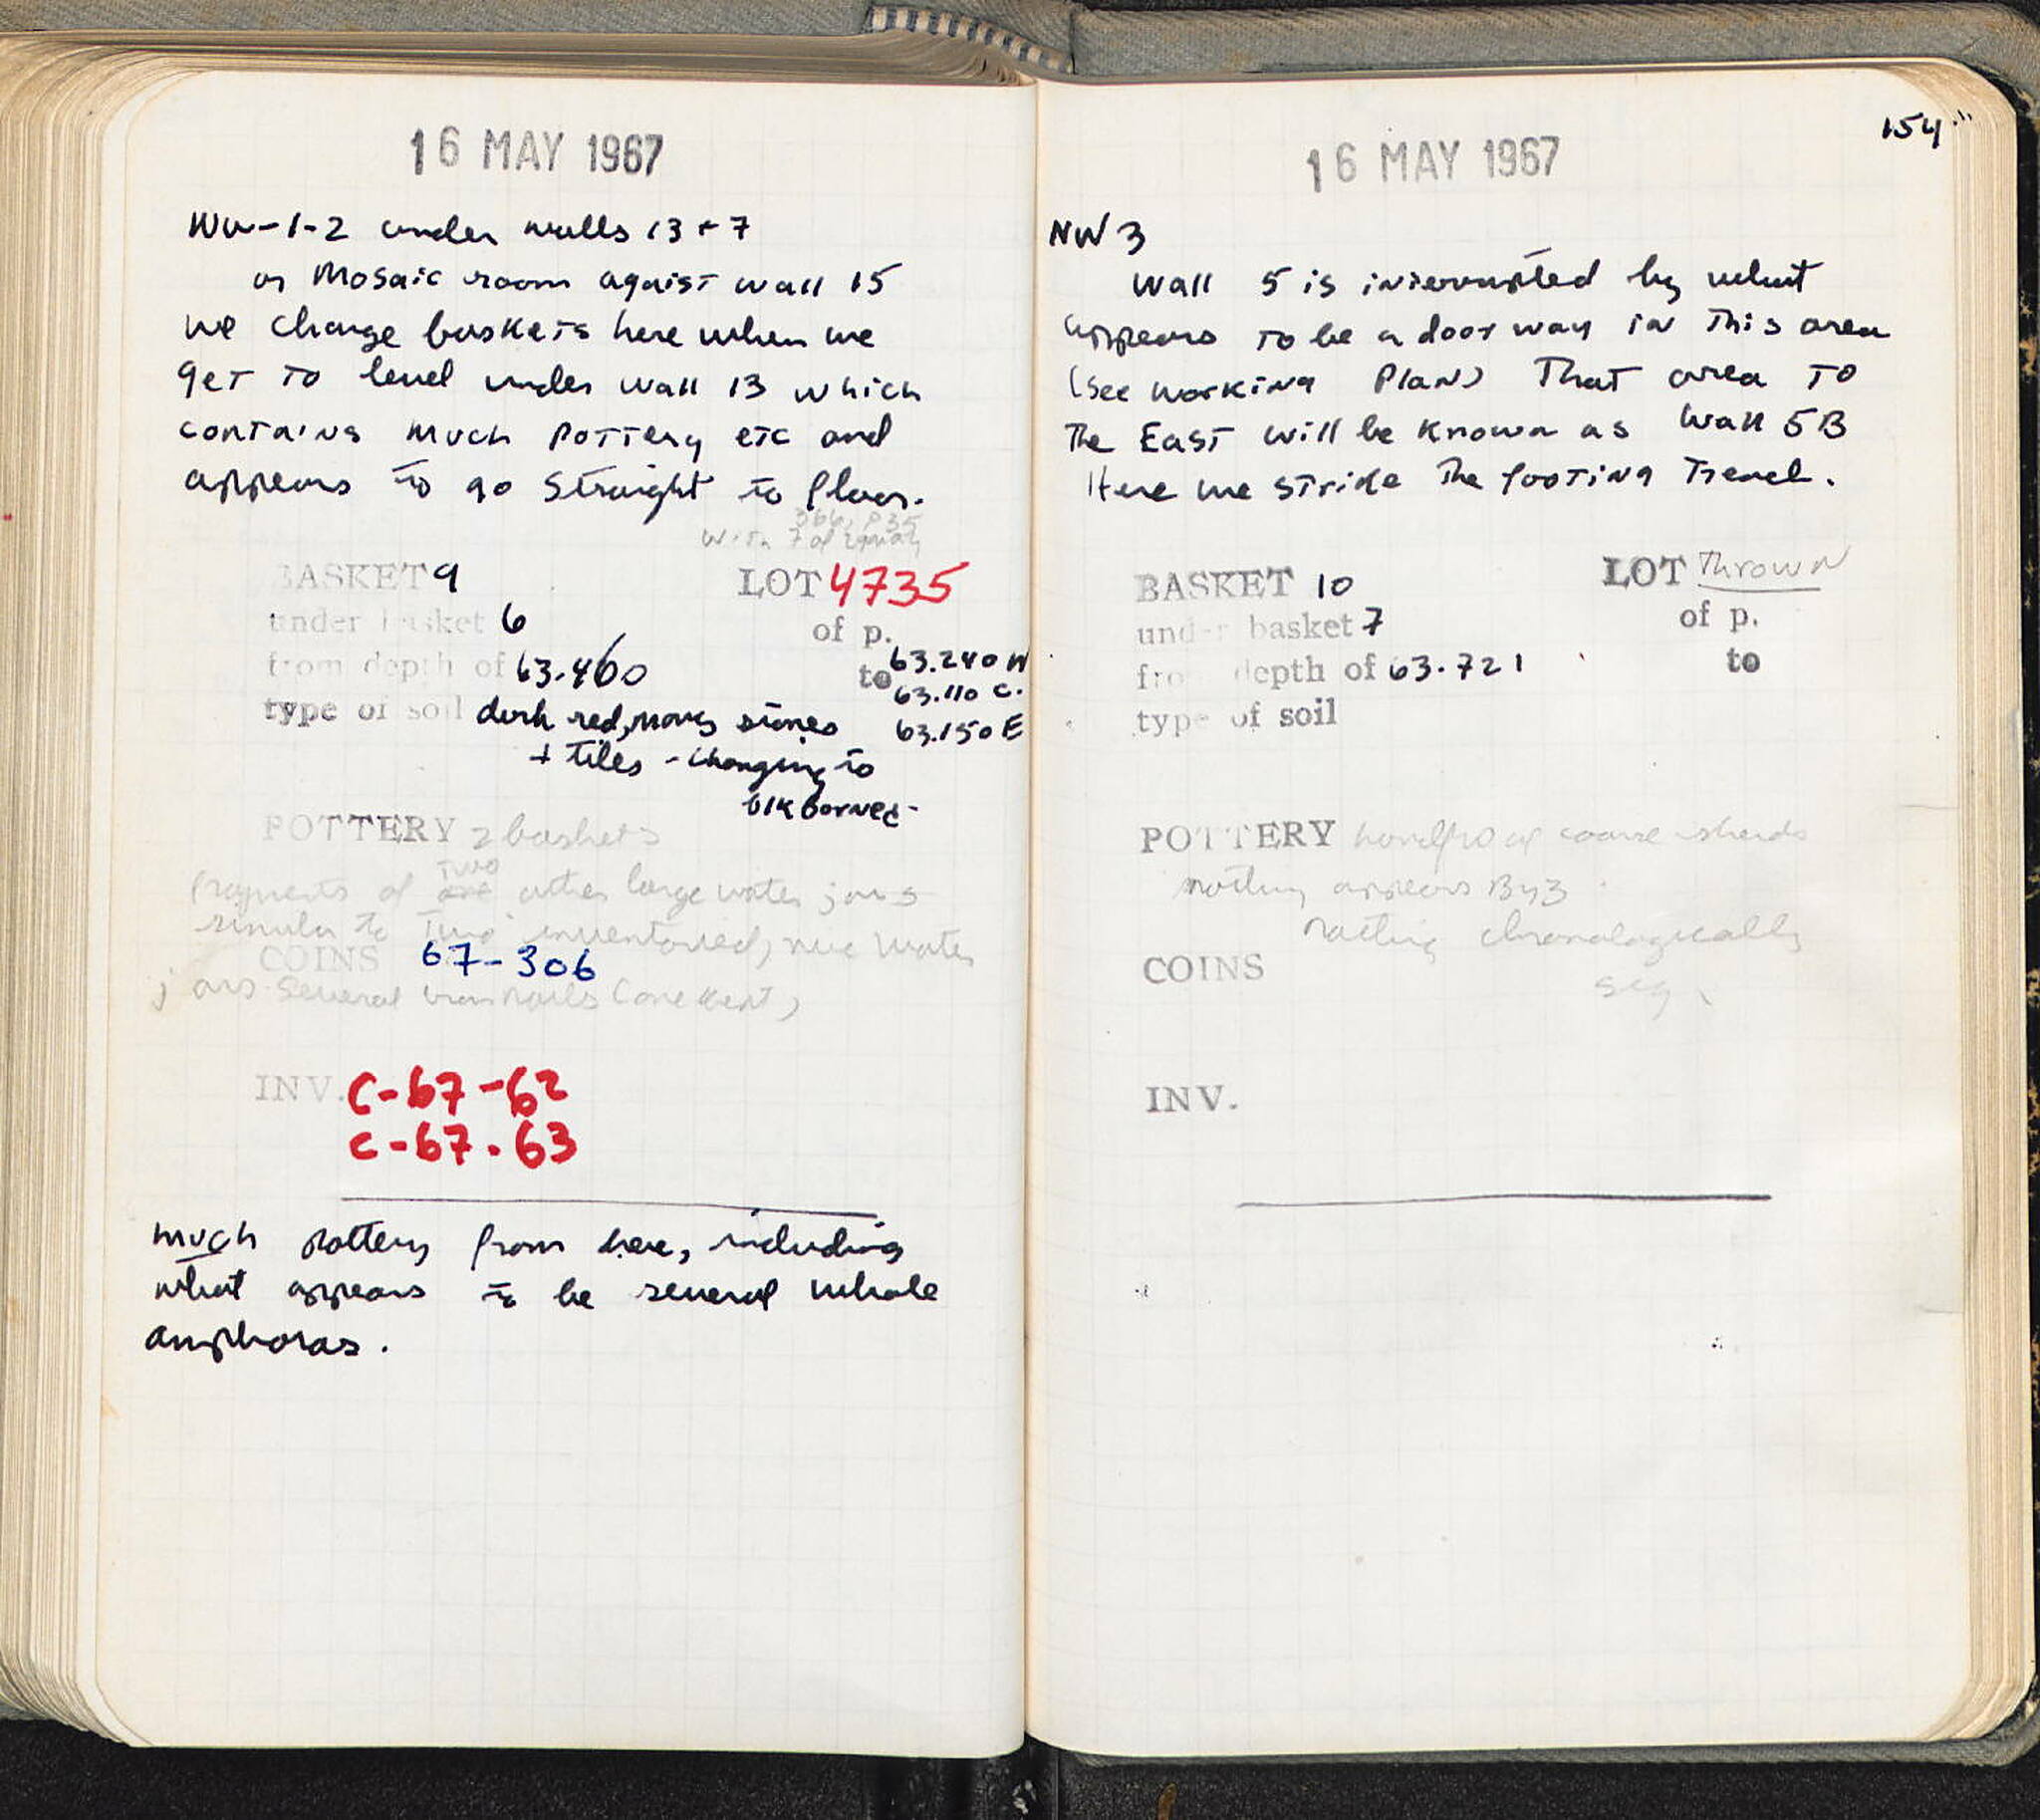 16 MAY 1967
NW-1-2 under walls 13 + 7
or Mosaic room agaist wall 15
we change baskets here when we
get to level under wall 13 which
contains much pottery etc and
appears to go straight to floor.
366, P35
with 7 of
BASKET 9 LOT 4735
under basket 6 of p.
from depth of 63.460 to 63.240 W
63.110 C.
type of soil dark red, many stones 63.150 E
+ tiles - changing to
blk borned-
POTTERY 2 baskets
two
fragments of one other large water jars
simular to Two inventoried, nue water
COINS 67-306
jars. several iron nails (one bent)
INV. C-67-62
C-67-63
much pottery from here, including
what appears to be several whole
amphoras.
154
16 MAY 1967
NW 3
Wall 5 is interrupted by what
appears to be a doorway in this area
(See working Plan) That area to
the East will be known as Wall 5B
Here we strike the footing trench.
BASKET 10 LOT Thrown
under basket 7 of p.
from depth of 63.721 to
type of soil
POTTERY handful of coarse sherds
nothing appears Byz
nothing chronologically
COINS
sig.
INV.